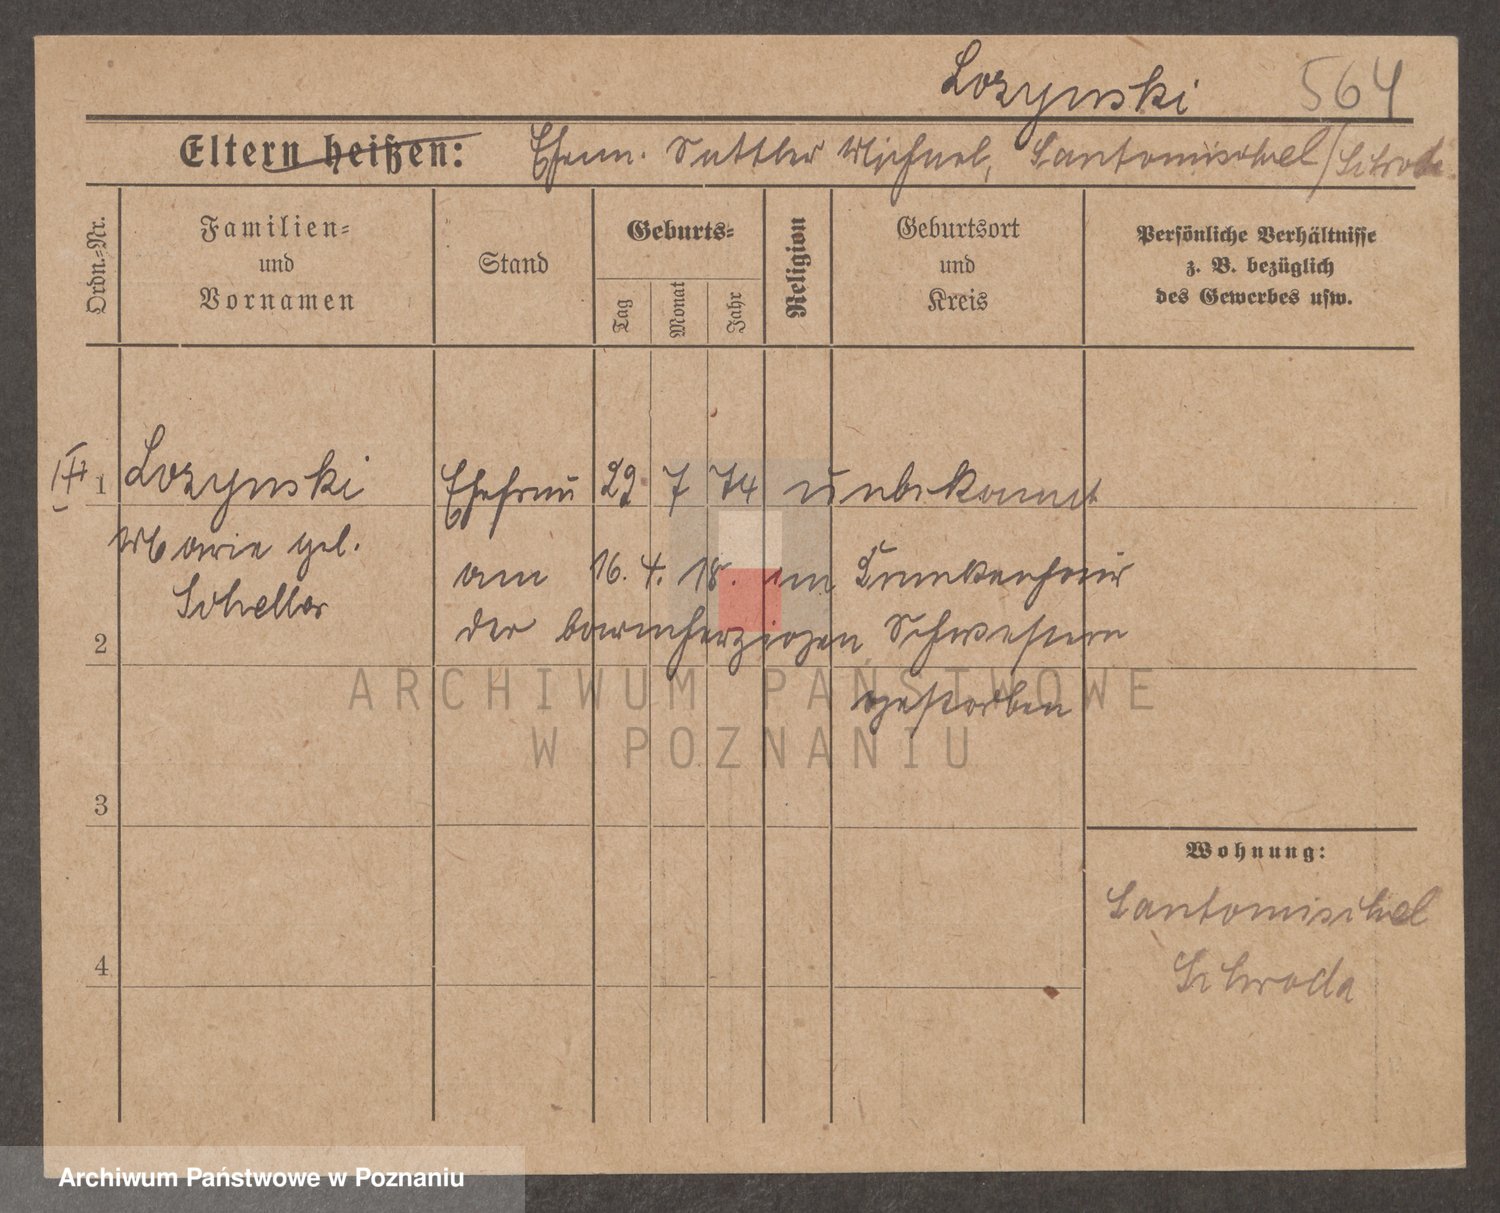 Lozynski 564
Eltern heißen: Ehem. Sattler Michael, Santomischel/Schroda
Ordn.-Nr.
Familien-
und
Vornamen
Stand
Geburts-
Tag
Monat
Jahr
Religion
Geburtsort
und
Kreis
Persönliche Verhältnisse
z. B. bezüglich
des Gewerbes usw.
1 Lozynski Ehefrau 29 7 74 unbekannt
Marie geb.
am 16. 4. 18. im Krankenhaus
Scheller
der barmherzigen Schwestern
2
gestorben
ARCHIWUM PAŃSTWOWE
W POZNANIU
3
Wohnung:
Santomischel
4
Schroda
Archiwum Państwowe w Poznaniu